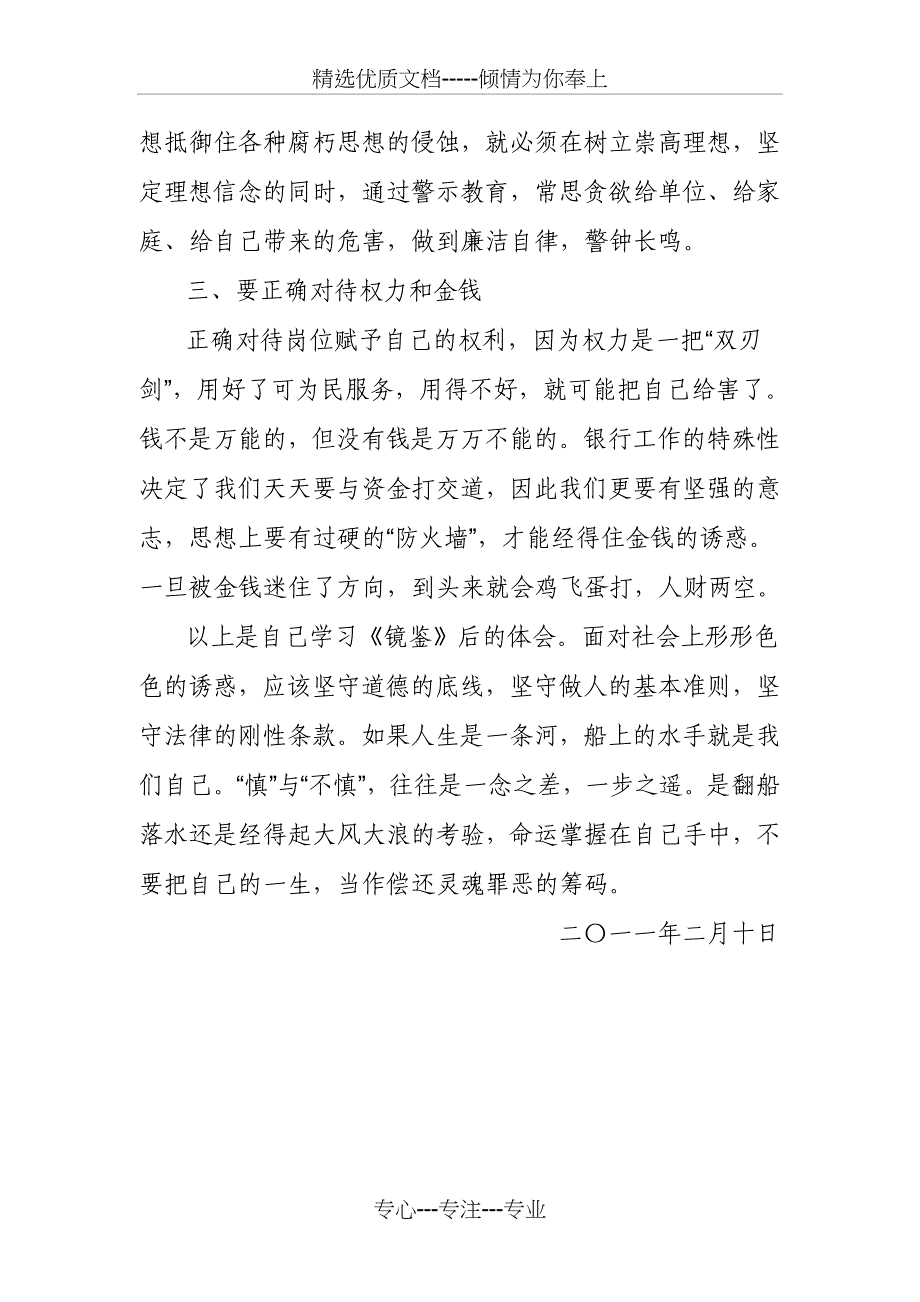 精选优质文档-----倾情为你奉上
想抵御住各种腐朽思想的侵蚀，就必须在树立崇高理想，坚
定理想信念的同时，通过警示教育，常思贪欲给单位、给家
庭、给自己带来的危害，做到廉洁自律，警钟长鸣。
三、要正确对待权力和金钱
正确对待岗位赋予自己的权利，因为权力是一把“双刃
剑”，用好了可为民服务，用得不好，就可能把自己给害了。
钱不是万能的，但没有钱是万万不能的。银行工作的特殊性
决定了我们天天要与资金打交道，因此我们更要有坚强的意
志，思想上要有过硬的“防火墙”，才能经得住金钱的诱惑。
一旦被金钱迷住了方向，到头来就会鸡飞蛋打，人财两空。
以上是自己学习《镜鉴》后的体会。面对社会上形形色
色的诱惑，应该坚守道德的底线，坚守做人的基本准则，坚
守法律的刚性条款。如果人生是一条河，船上的水手就是我
们自己。“慎”与“不慎”，往往是一念之差，一步之遥。是翻船
落水还是经得起大风大浪的考验，命运掌握在自己手中，不
要把自己的一生，当作偿还灵魂罪恶的筹码。
二〇一一年二月十日
专心---专注---专业